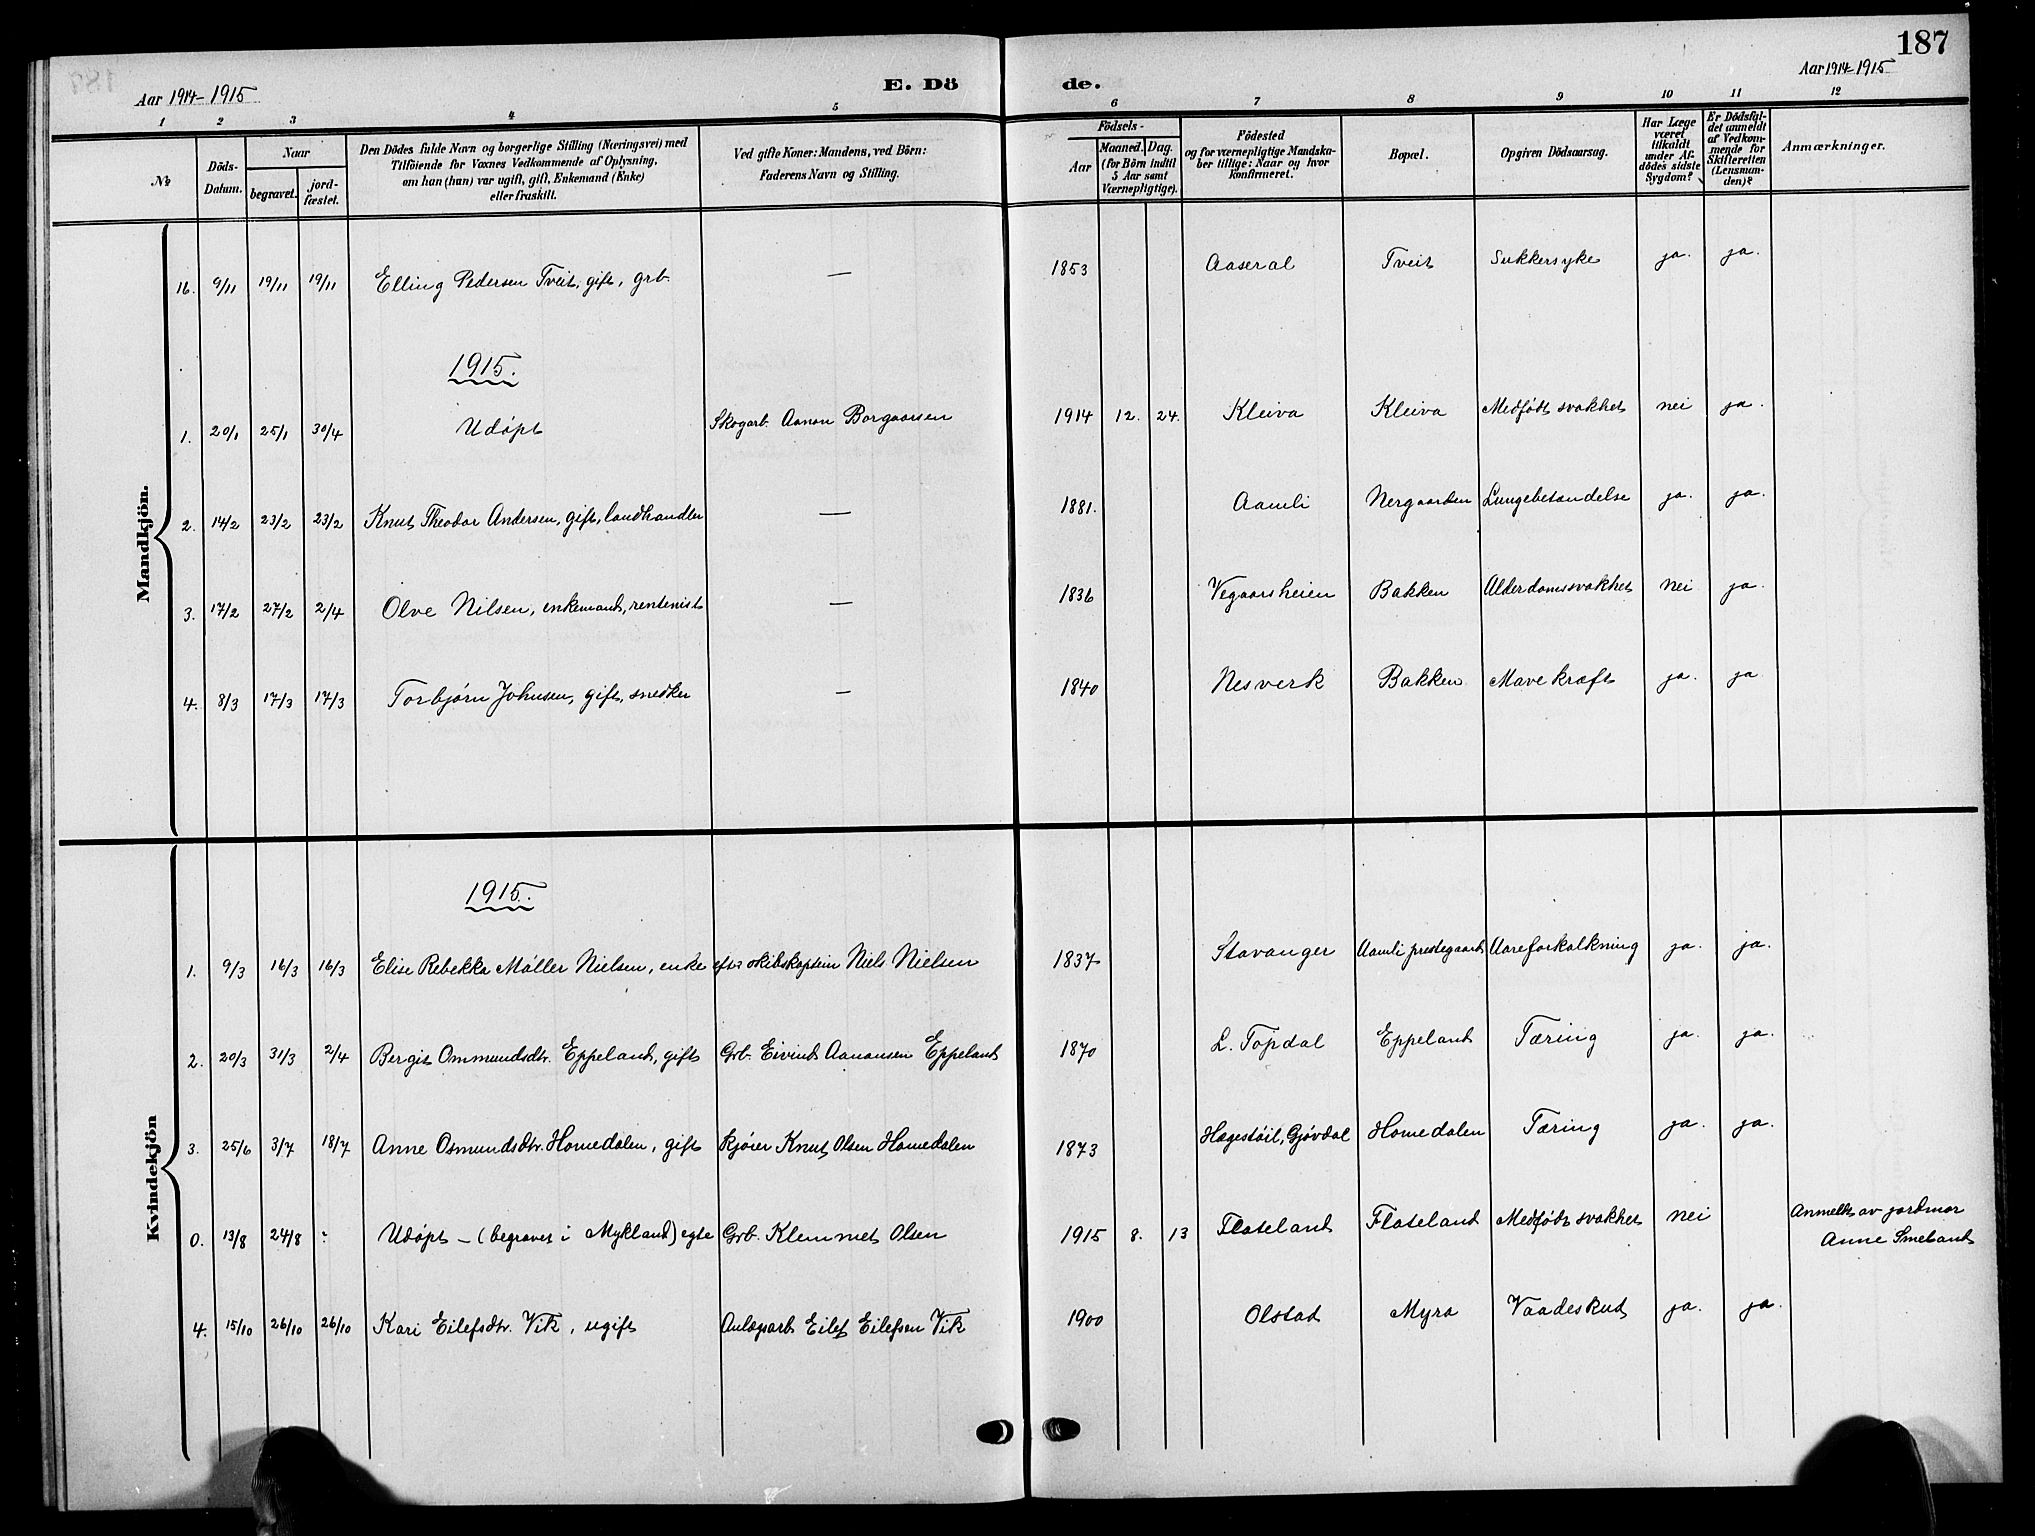 187
Aar 1914-1915
E. Dö
de.
Aar 1914-1915
1 2 3 4 5 6 7 8 9 10 11 12
№
Döds-Datum.
Naar
begravet.
jord-fæstet.
Den Dödes fulde Navn og borgerlige Stilling (Næringsvei) med
Tilföiende for Voxnes Vedkommende af Oplysning,
om han (hun) var ugift, gift, Enkemand (Enke)
eller fraskilt.
Ved gifte Koner: Mandens, ved Börn:
Faderens Navn og Stilling.
Födsels-
Aar
Maaned. Dag.
(for Börn indtil
5 Aar samt
Værnepligtige).
Födested
og for værnepligtige Mandska-
ber tillige: Naar og hvor
konfirmeret.
Bopæl.
Opgiven Dödsaarsag.
Har Læge
været
tilkaldt
under Af-
dödes sidste
Sygdom?
Er Dödsfal-
det anmeldt
af Vedkom-
mende for
Skifteretten
(Lensman-
den)?
Anmærkninger.
Mandkjön.
16. 9/11 19/11 19/11 Elling Pedersen Tveit, gift, grb. — 1853 Aaseral Tveit Sukkersyke ja. ja.
1915.
1. 20/1 25/1 30/4 Udøpt Skogarb. Aanon Borgaarsen 1914 12. 24. Kleiva Kleiva Medfødt svakhet nei ja.
2. 14/2 23/2 23/2 Knut Theodor Andersen, gift, landhandler — 1881. Aamli Nergaarden Lungebetændelse ja. ja.
3. 17/2 27/2 2/4 Olve Nilsen, enkemand, rentenist — 1836 Vegaarsheien Bakken Alderdomssvakhet nei ja.
4. 8/3 17/3 17/3 Torbjørn Johnsen, gift, snedker — 1840 Nesverk Bakken Mavekræft ja. ja
Kvindekjön
1915.
1. 9/3 16/3 16/3 Elise Rebekka Møller Nielsen, enke efter skibskaptein Niels Nielsen 1837 Stavanger Aamli prestegaard Aareforkalkning ja. ja.
2. 20/3 31/3 2/4 Bergit Ommundsdtr. Eppeland, gift Grb. Eivind Aanonsen Eppeland 1870 L. Topdal Eppeland Tæring ja. ja.
3. 25/6 3/7 18/7 Anne Osmundsdtr. Homedalen, gift Kjører Knut Olsen Homedalen 1873 Hægestøil, Gjøvdal Homedalen Tæring ja. ja.
0. 13/8 24/8 Udøpt - (begravet i Mykland) egte Grb. Klemmet Olsen 1915 8. 13 Flateland Flateland Medfødt svakhet nei Anmeldt av jordmor
Anne Smeland
4. 15/10 26/10 26/10 Kari Eilefsdtr. Vik, ugift Anlægsarb. Eilef Eilefsen Vik 1900 Olstad Myra Vaadeskud ja. ja.